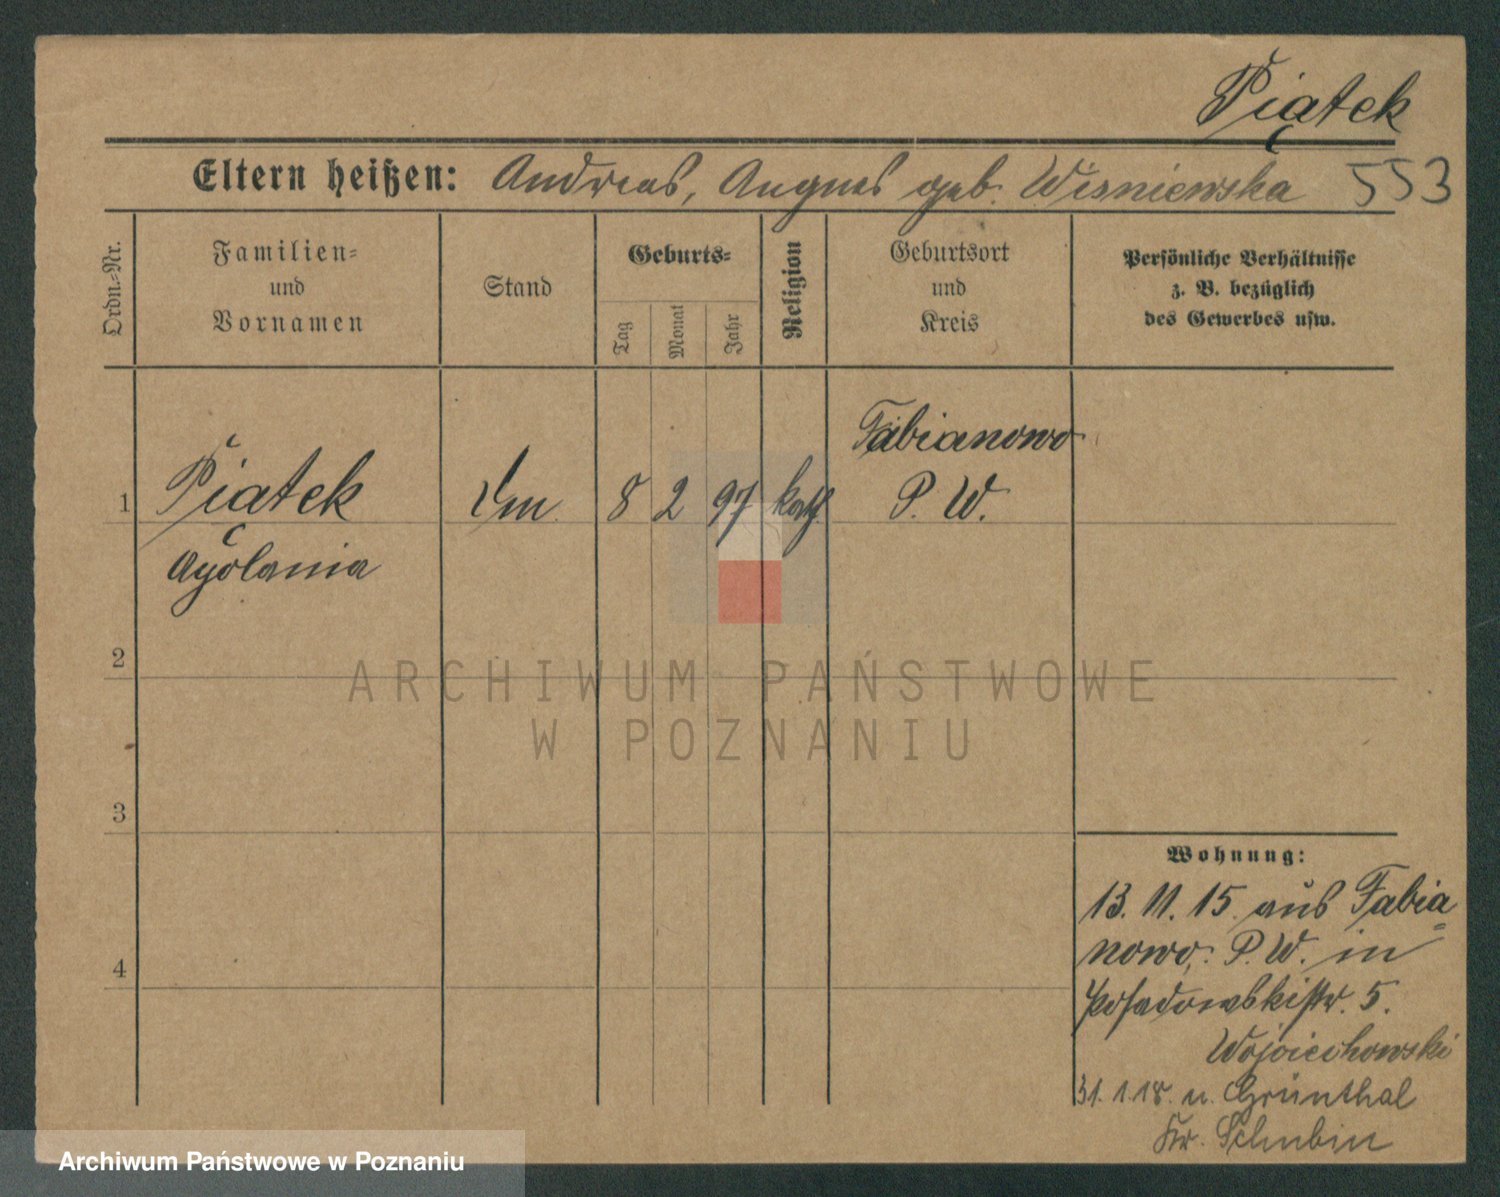 Piątek
Eltern heißen: Andreas, Augnes geb. Wisniewska 553
Ordn.=Nr.
Familien=
und
Vornamen
Stand
Geburts=
Tag
Monat
Jahr
Religion
Geburtsort
und
Kreis
Persönliche Verhältnisse
z. B. bezüglich
des Gewerbes usw.
1 Piątek 8 2 97 kath Fabianowo
P. W.
2
3
4
ARCHIWUM PAŃSTWOWE
W POZNANIU
Wohnung:
13. 11. 15. aus Fabia=
nowo. P. W. in
Posadowskistr. 5.
Wojciechowski
31. 1. 18. n. Grünthal
Kr. Schubin
Archiwum Państwowe w Poznaniu